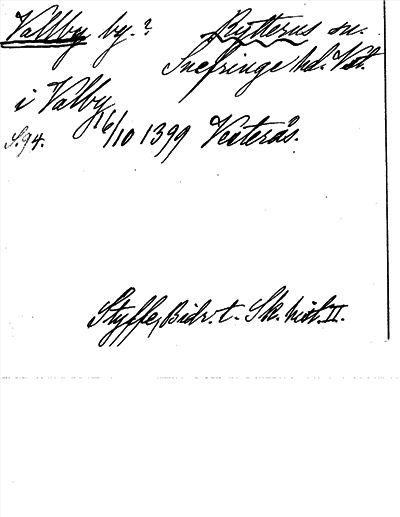 Vallby by.? Rytterns sn.
Snefringe hd. Vstm.
i Valby
S.94. 16/10 1399 Vesterås.
Styffe, Bidr. t. Sk. hist. II.